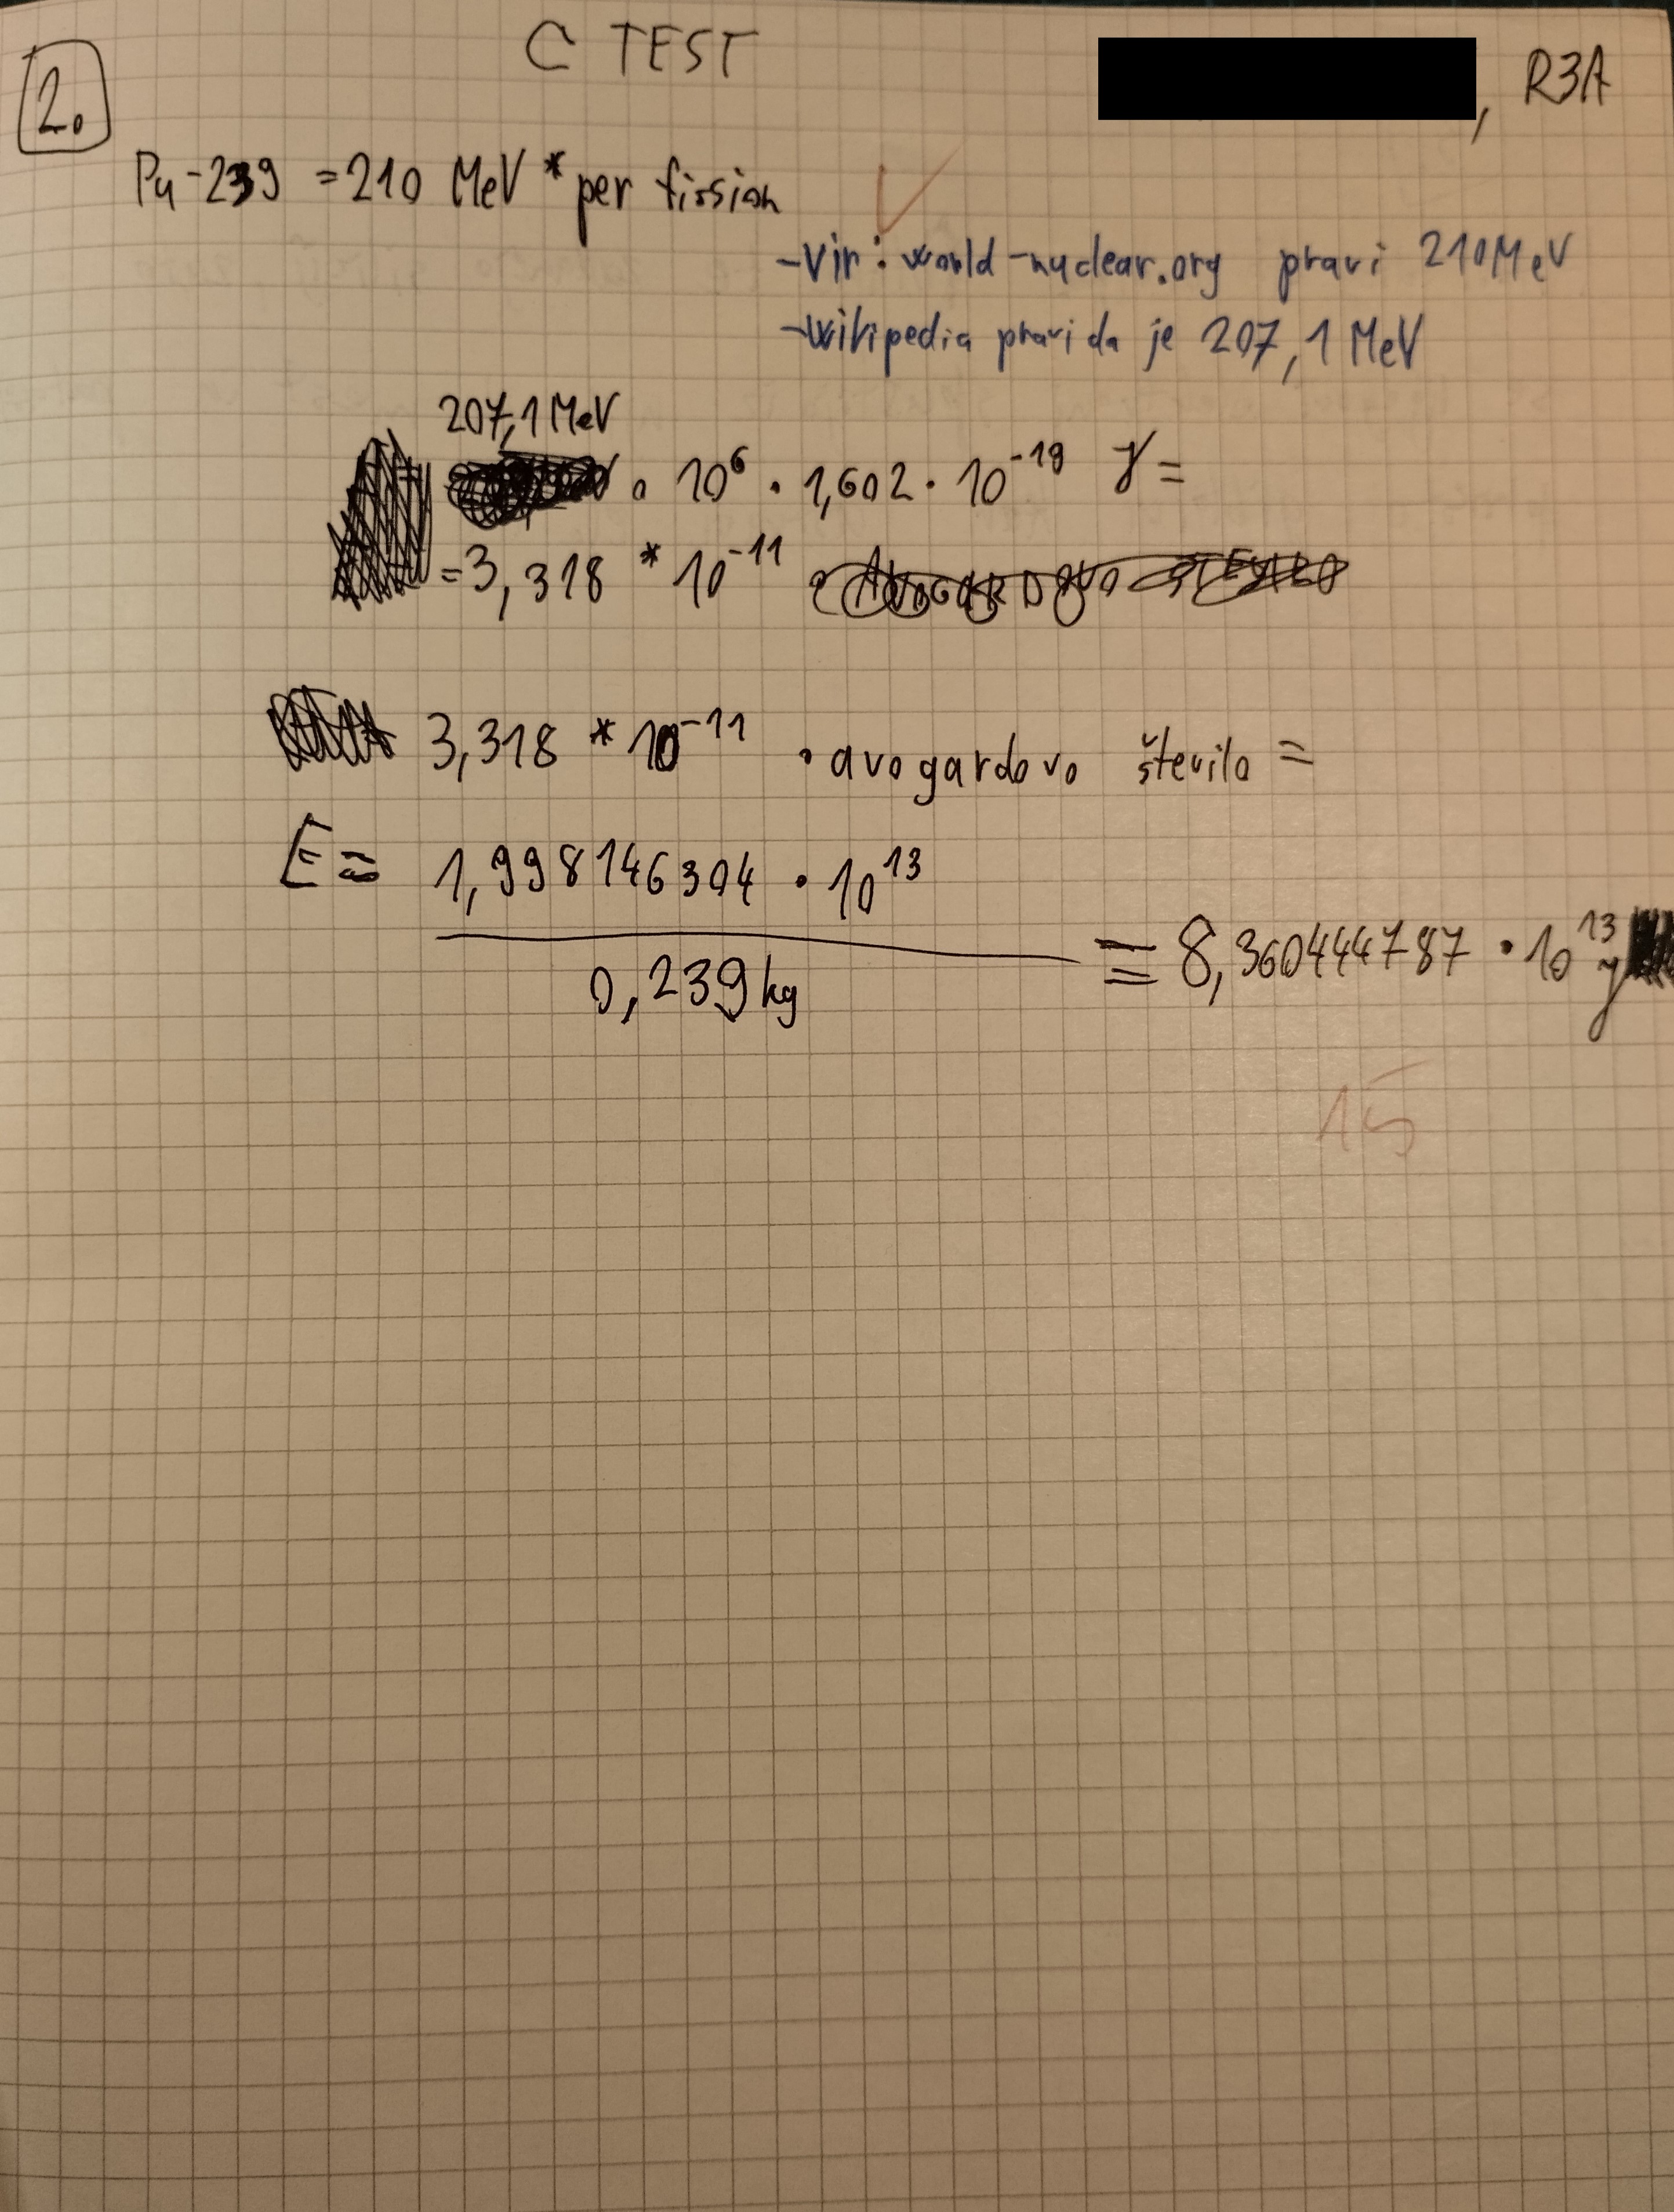 C TEST
, R3A
2.
Pu-239 = 210 MeV * per fission
-Vir: world-nuclear.org pravi 210MeV
-Wikipedia pravi da je 207,1 MeV
207,1 MeV
· 10⁶ · 1,602 · 10⁻¹⁹ J =
= 3,318 * 10⁻¹¹
3,318 * 10⁻¹¹ · avogardovo število =
E = 1,998146304 · 10¹³
0,239kg
= 8,360444787 · 10¹³ J
15